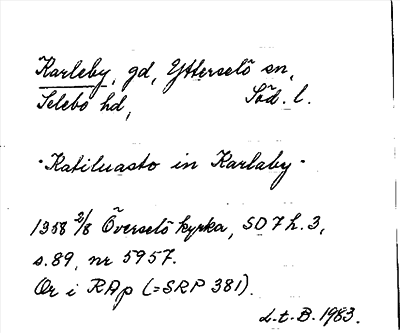 Karleby, gd, Ytterselö sn,
Selebo hd, Söd. l.
"Katiluasto in Karlaby"
1358 2/8 Överselö kyrka, SD 7 h. 3,
s. 89, nr 5957.
Or i RAp (= SRP 381).
L.t.B. 1983.